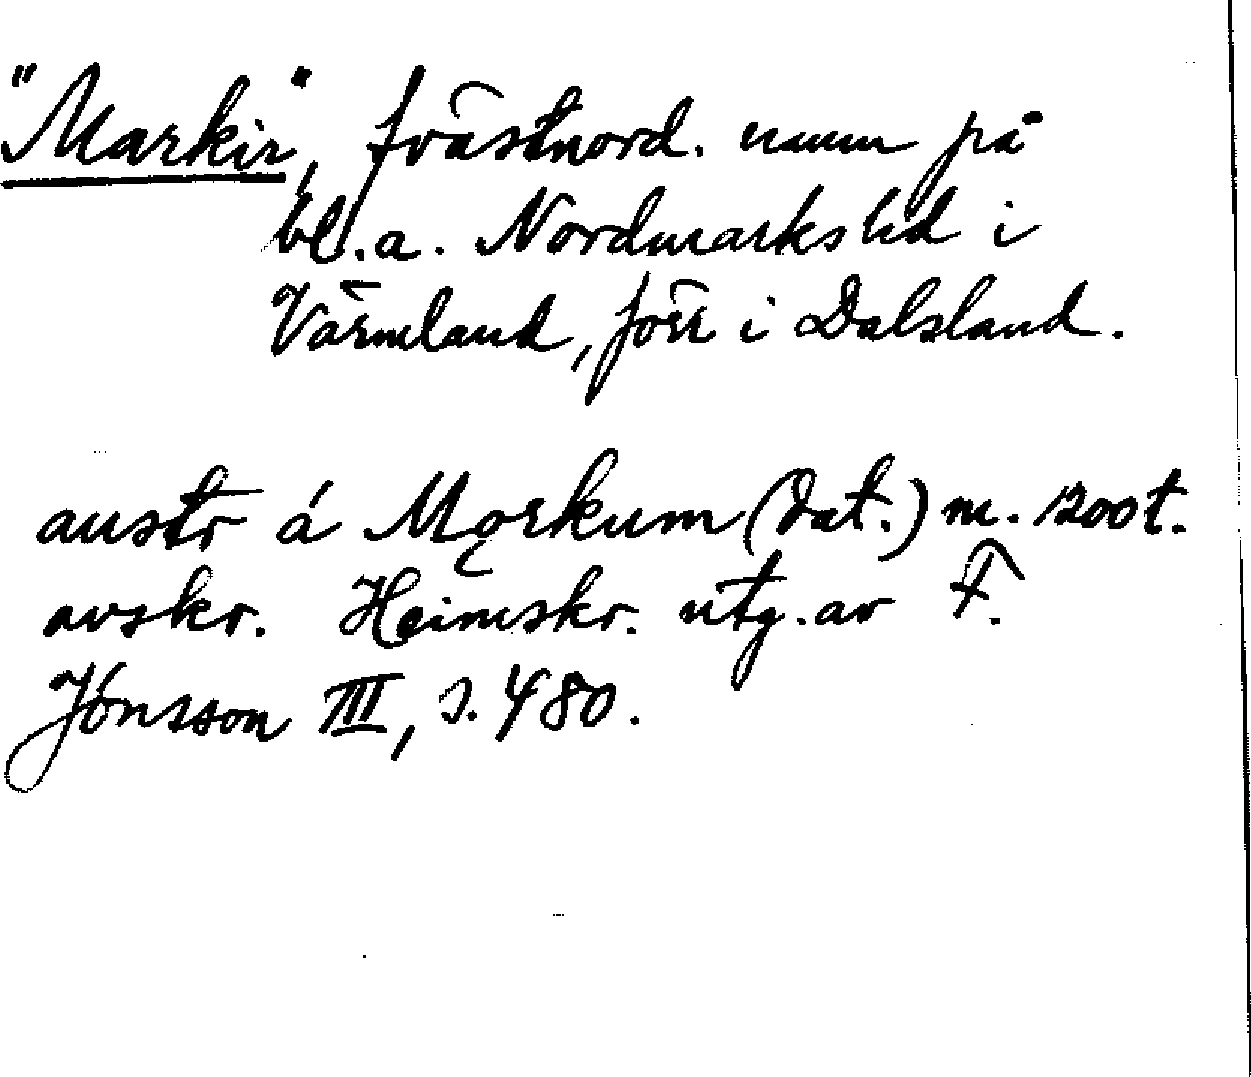 "Markir", fvästnord. namn på
bl.a. Nordmarks hd i
Värmland, förr i Dalsland.
austr á Mǫrkum (dat.) m. 1200 t.
avskr. Heimskr. utg. av F.
Jónsson III, s. 480.